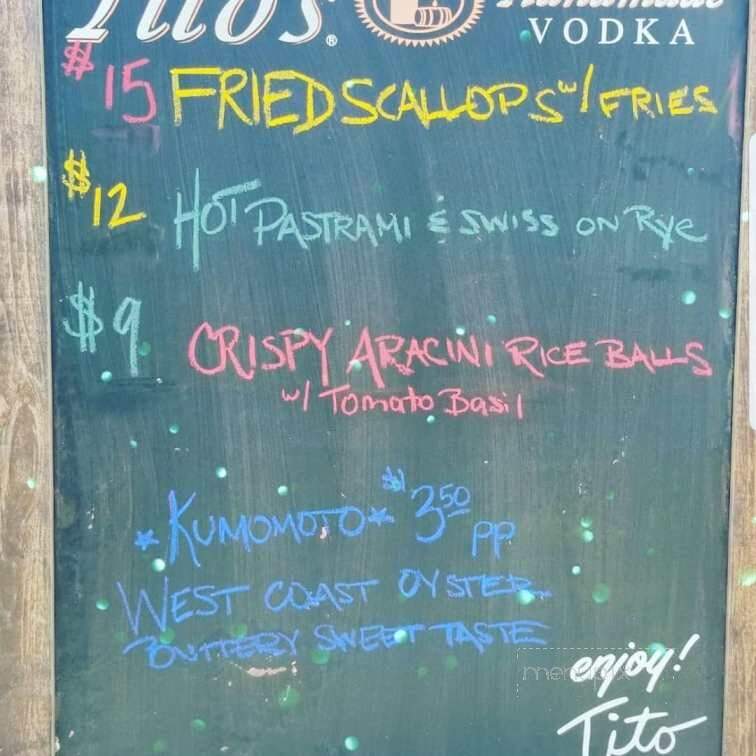 Tito's®
Handmade
VODKA
$15 FRIED SCALLOPS w/ FRIES
$12 HOT PASTRAMI & SWISS ON Rye
$9 CRISPY ARACINI RICE BALLS
w/ Tomato Basil
*KUMOMOTO* $3.50 PP
WEST COAST OYSTER
BUTTERY SWEET TASTE
enjoy!
Tito